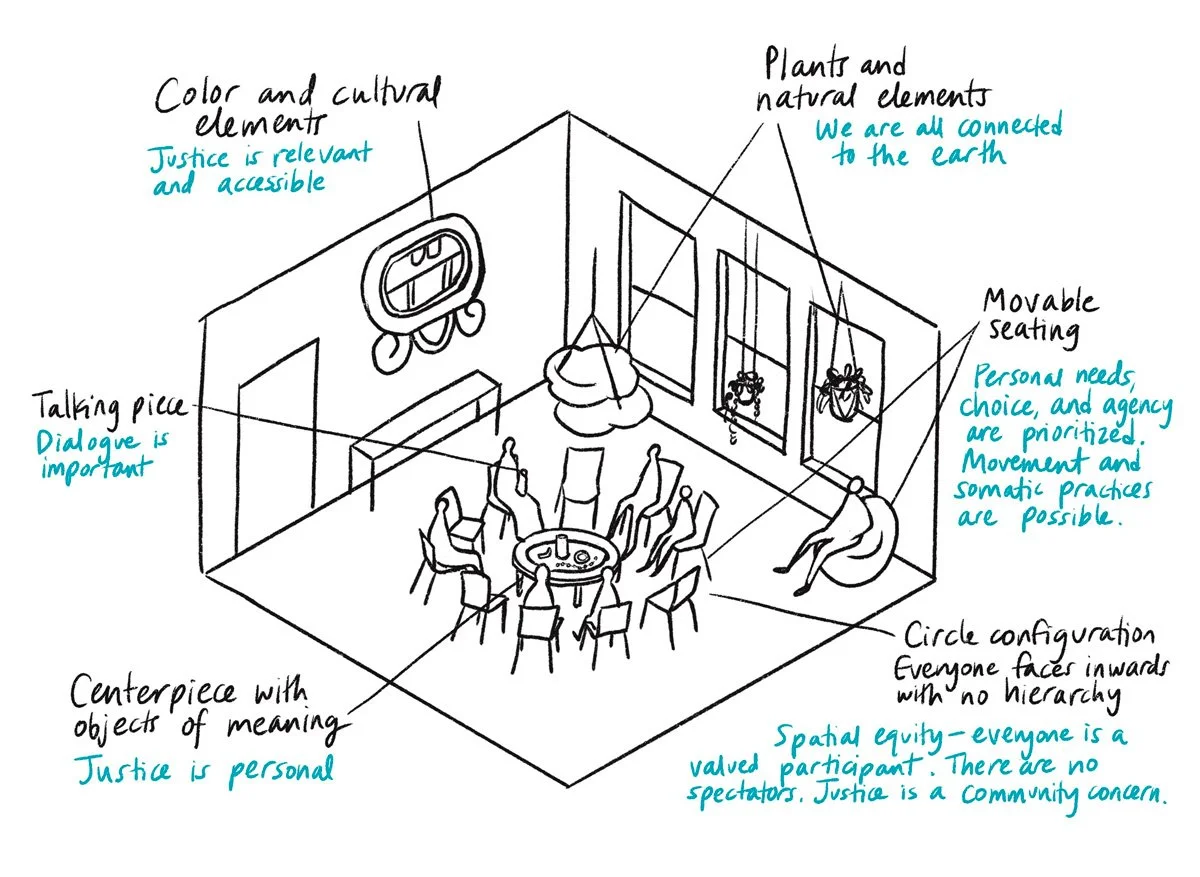 Color and cultural
elements
Justice is relevant
and accessible
Plants and
natural elements
We are all connected
to the earth
Movable
seating
Personal needs,
choice, and agency
are prioritized.
Movement and
somatic practices
are possible.
Talking piece
Dialogue is
important
Circle configuration
Everyone faces inwards
with no hierarchy
Spatial equity – everyone is a
valued participant. There are no
spectators. Justice is a community concern.
Centerpiece with
objects of meaning
Justice is personal